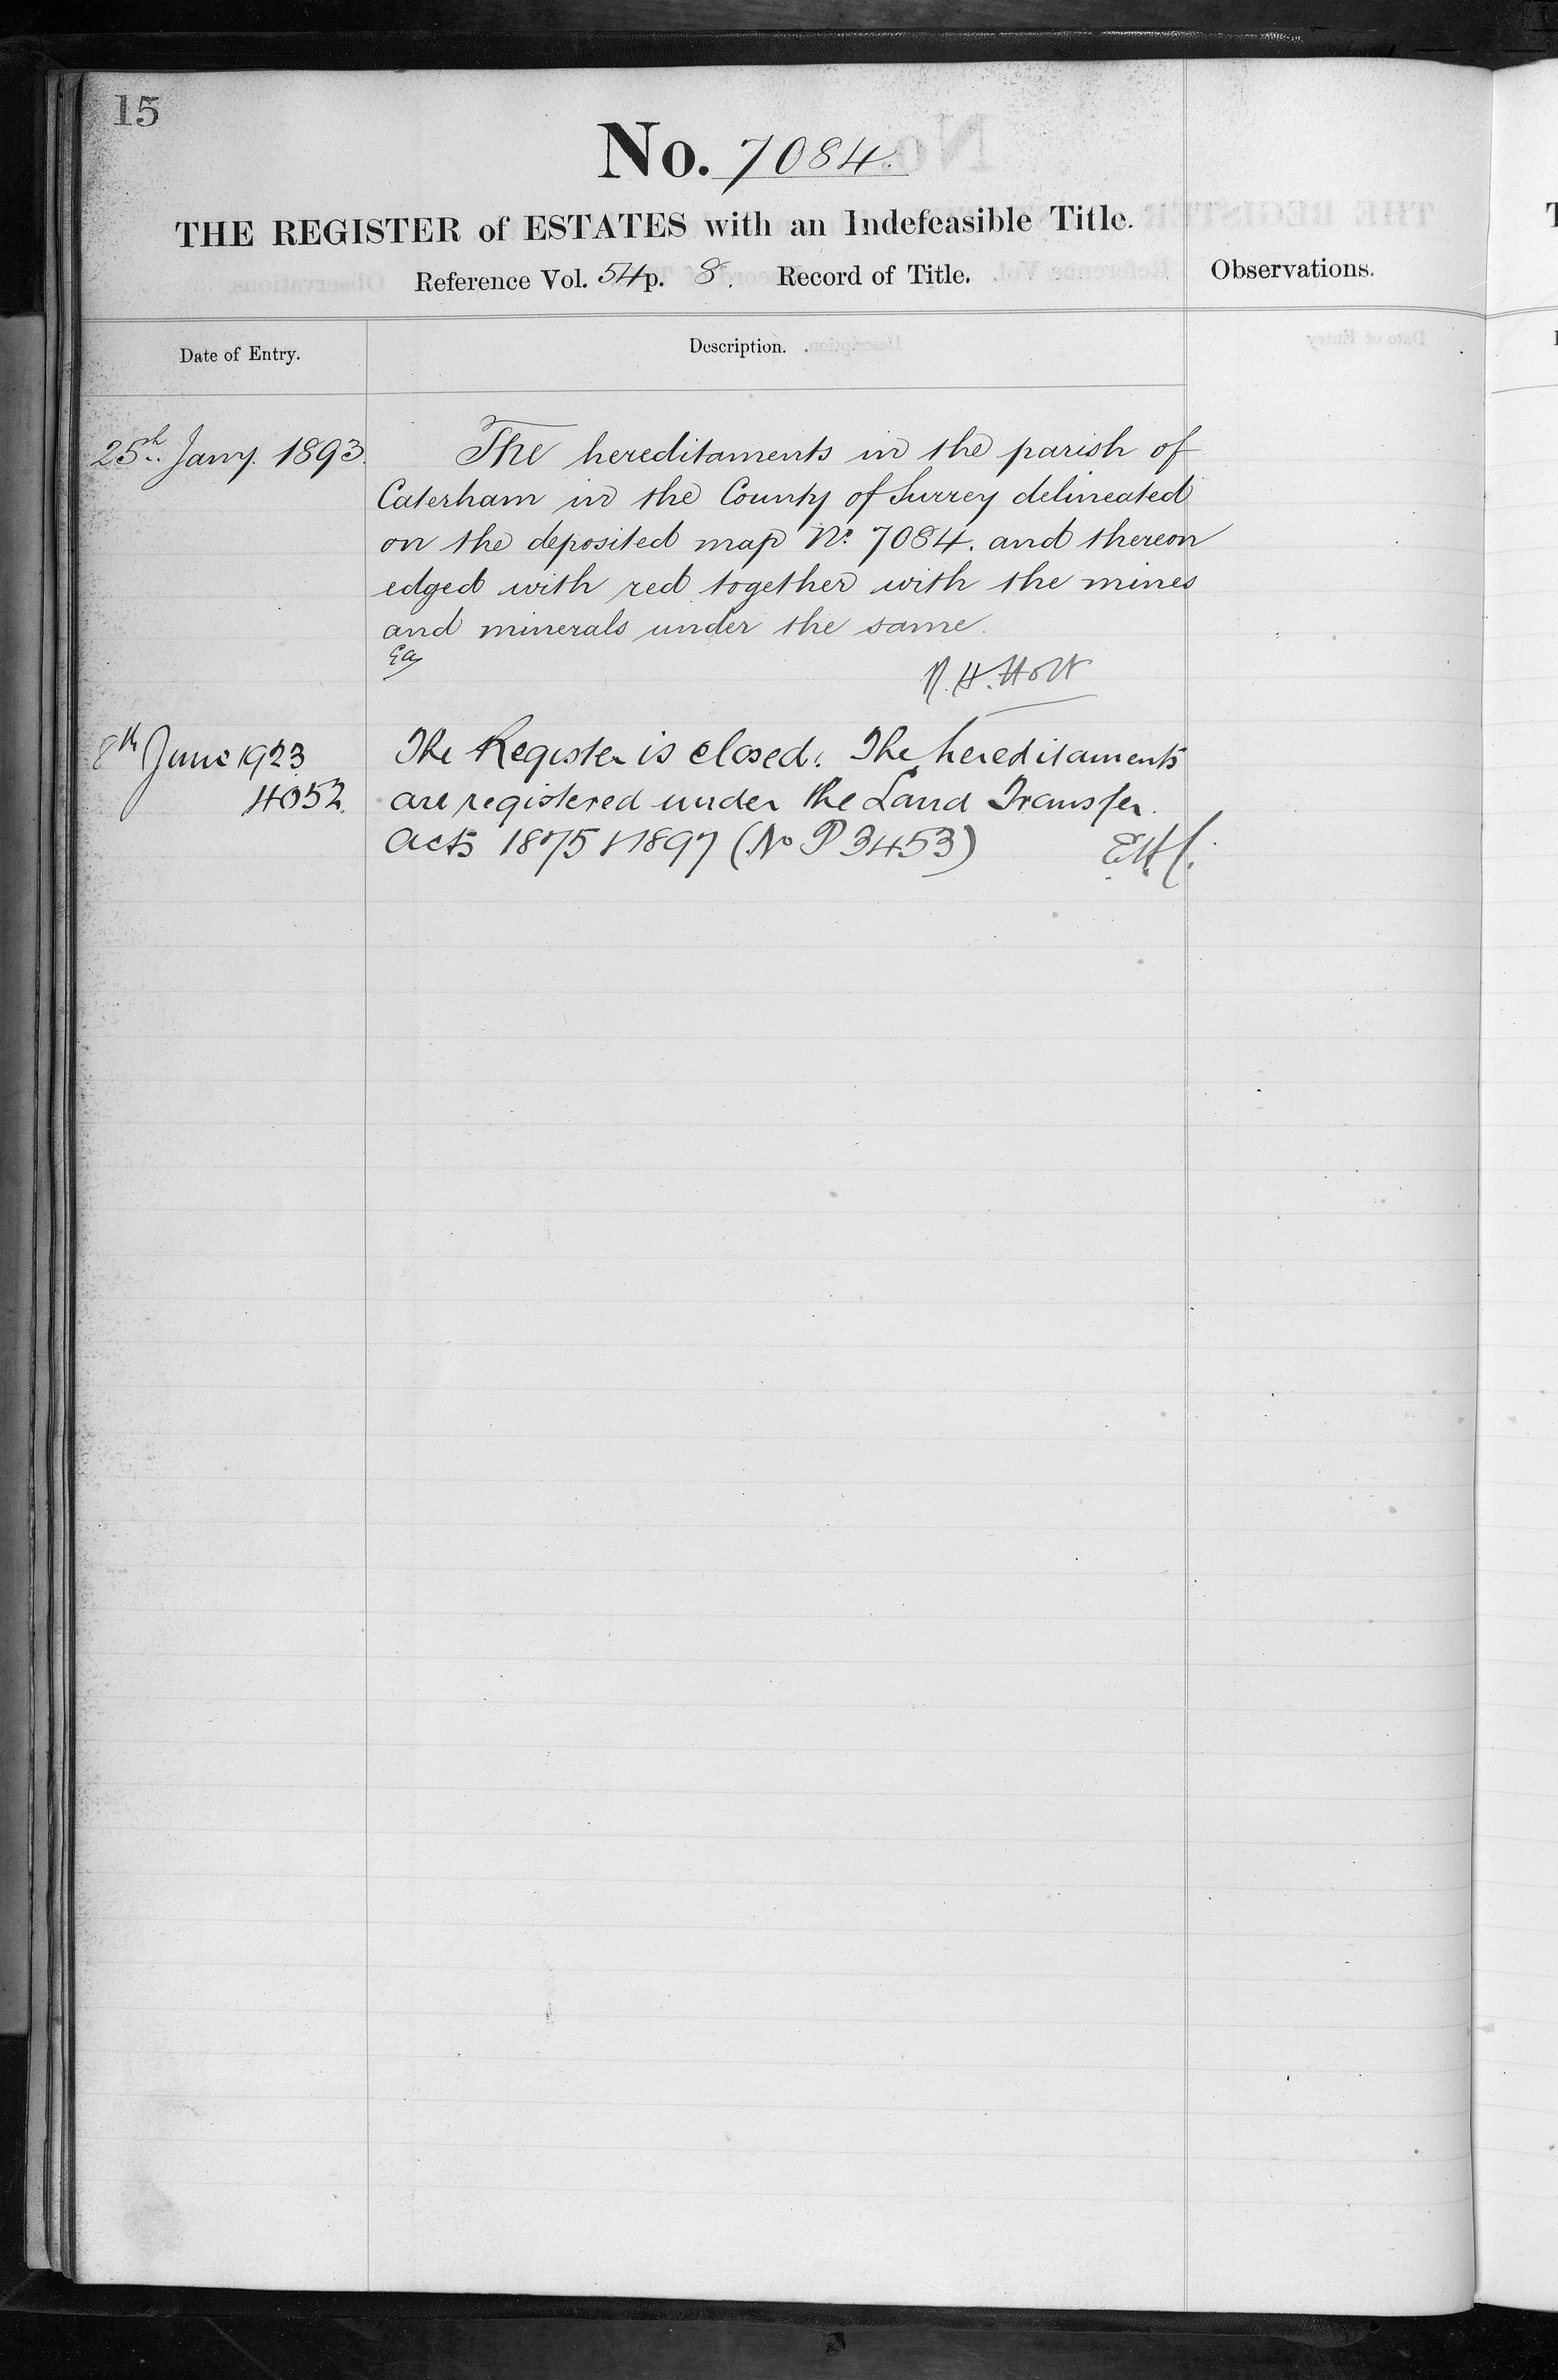 15
No. 7084.
THE REGISTER of ESTATES with an Indefeasible Title.
Reference Vol. 54 p. 8. Record of Title.
Observations.
Date of Entry.
Description.
25th Jany. 1893.
The hereditaments in the parish of
Caterham in the County of Surrey delineated
on the deposited map No. 7084. and thereon
edged with red together with the mines
and minerals under the same.
R. H. Holt
8th June 1923
4052.
The Register is closed. The hereditaments
are registered under the Land Transfer
Acts 1875 & 1897 (No P 3453)